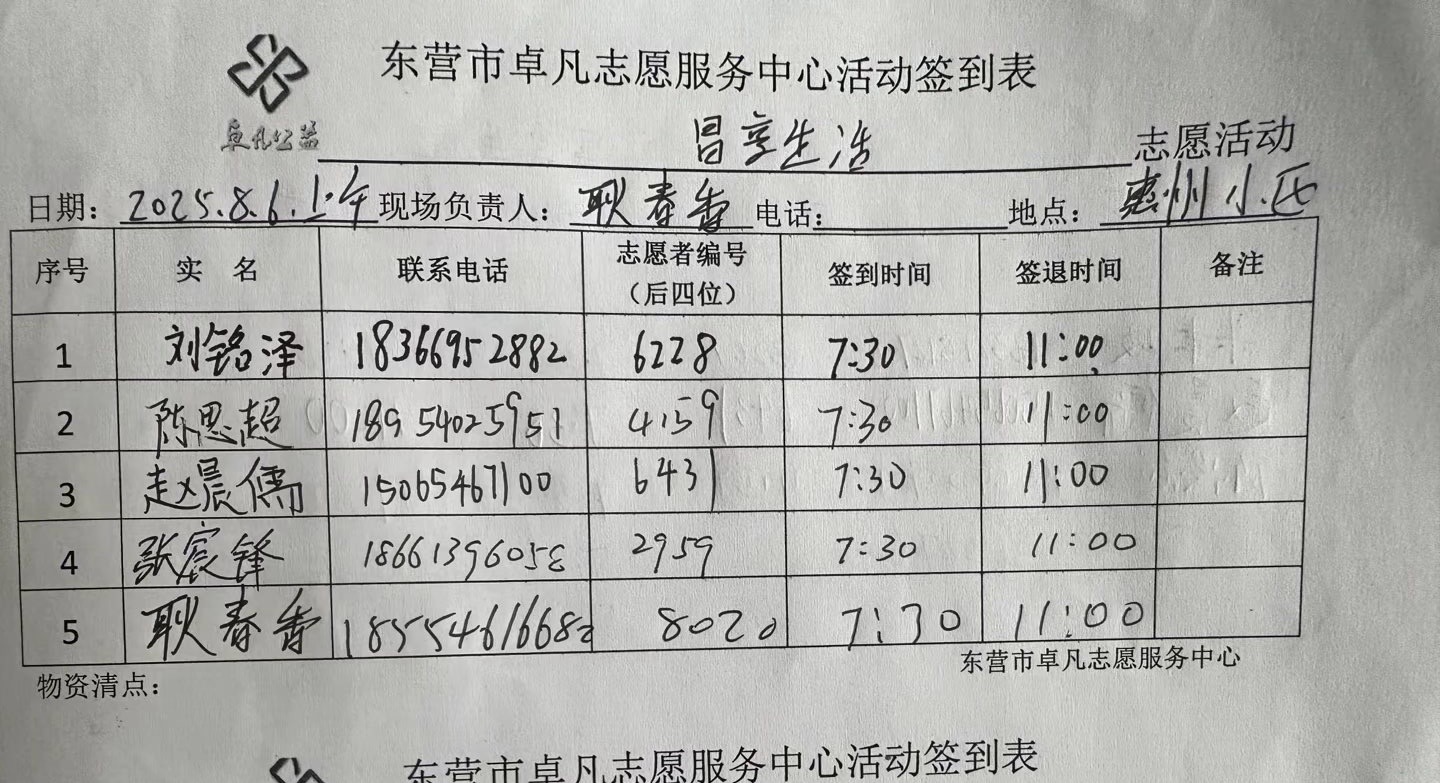 东营市卓凡志愿服务中心活动签到表
卓凡公益
昌享生活 志愿活动
日期：2025.8.6.上午 现场负责人：耿春香 电话： 地点：惠州小区
序号 实 名 联系电话 志愿者编号（后四位） 签到时间 签退时间 备注
1 刘铭泽 18366952882 6228 7:30 11:00
2 陈思超 18954025951 4159 7:30 11:00
3 赵晨儒 15065467100 6431 7:30 11:00
4 张宸锋 18661396058 2959 7:30 11:00
5 耿春香 18554616682 8020 7:30 11:00
东营市卓凡志愿服务中心
物资清点：
东营市卓凡志愿服务中心活动签到表